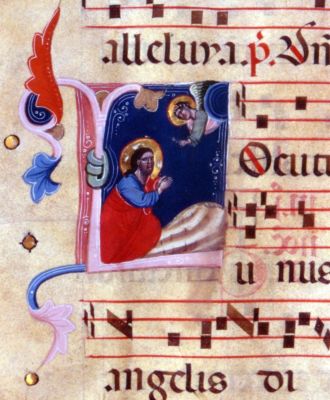 alleluya. p̃. Vn
LOcutu
u nus
angelis di